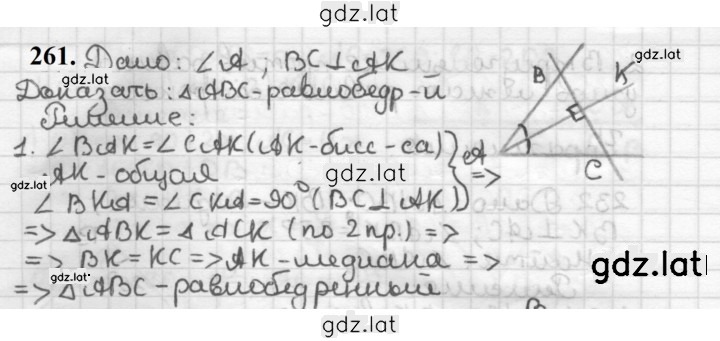 gdz.lat
261. Дано: ∠A, BC⊥AK
gdz.lat
Доказать: △ABC - равнобедр-й
Решение:
1. ∠BAK=∠CAK (AK-бисс-са)
AK - общая
gdz.lat
∠BKA=∠CKA=90° (BC⊥AK)
=>
=> △ABK=△ACK (по 2 пр.) =>
=> BK=KC => AK-медиана =>
gdz.lat
=> △ABC-равнобедренный
B
K
A
C
gdz.lat
gdz.lat
gdz.lat
gdz.lat